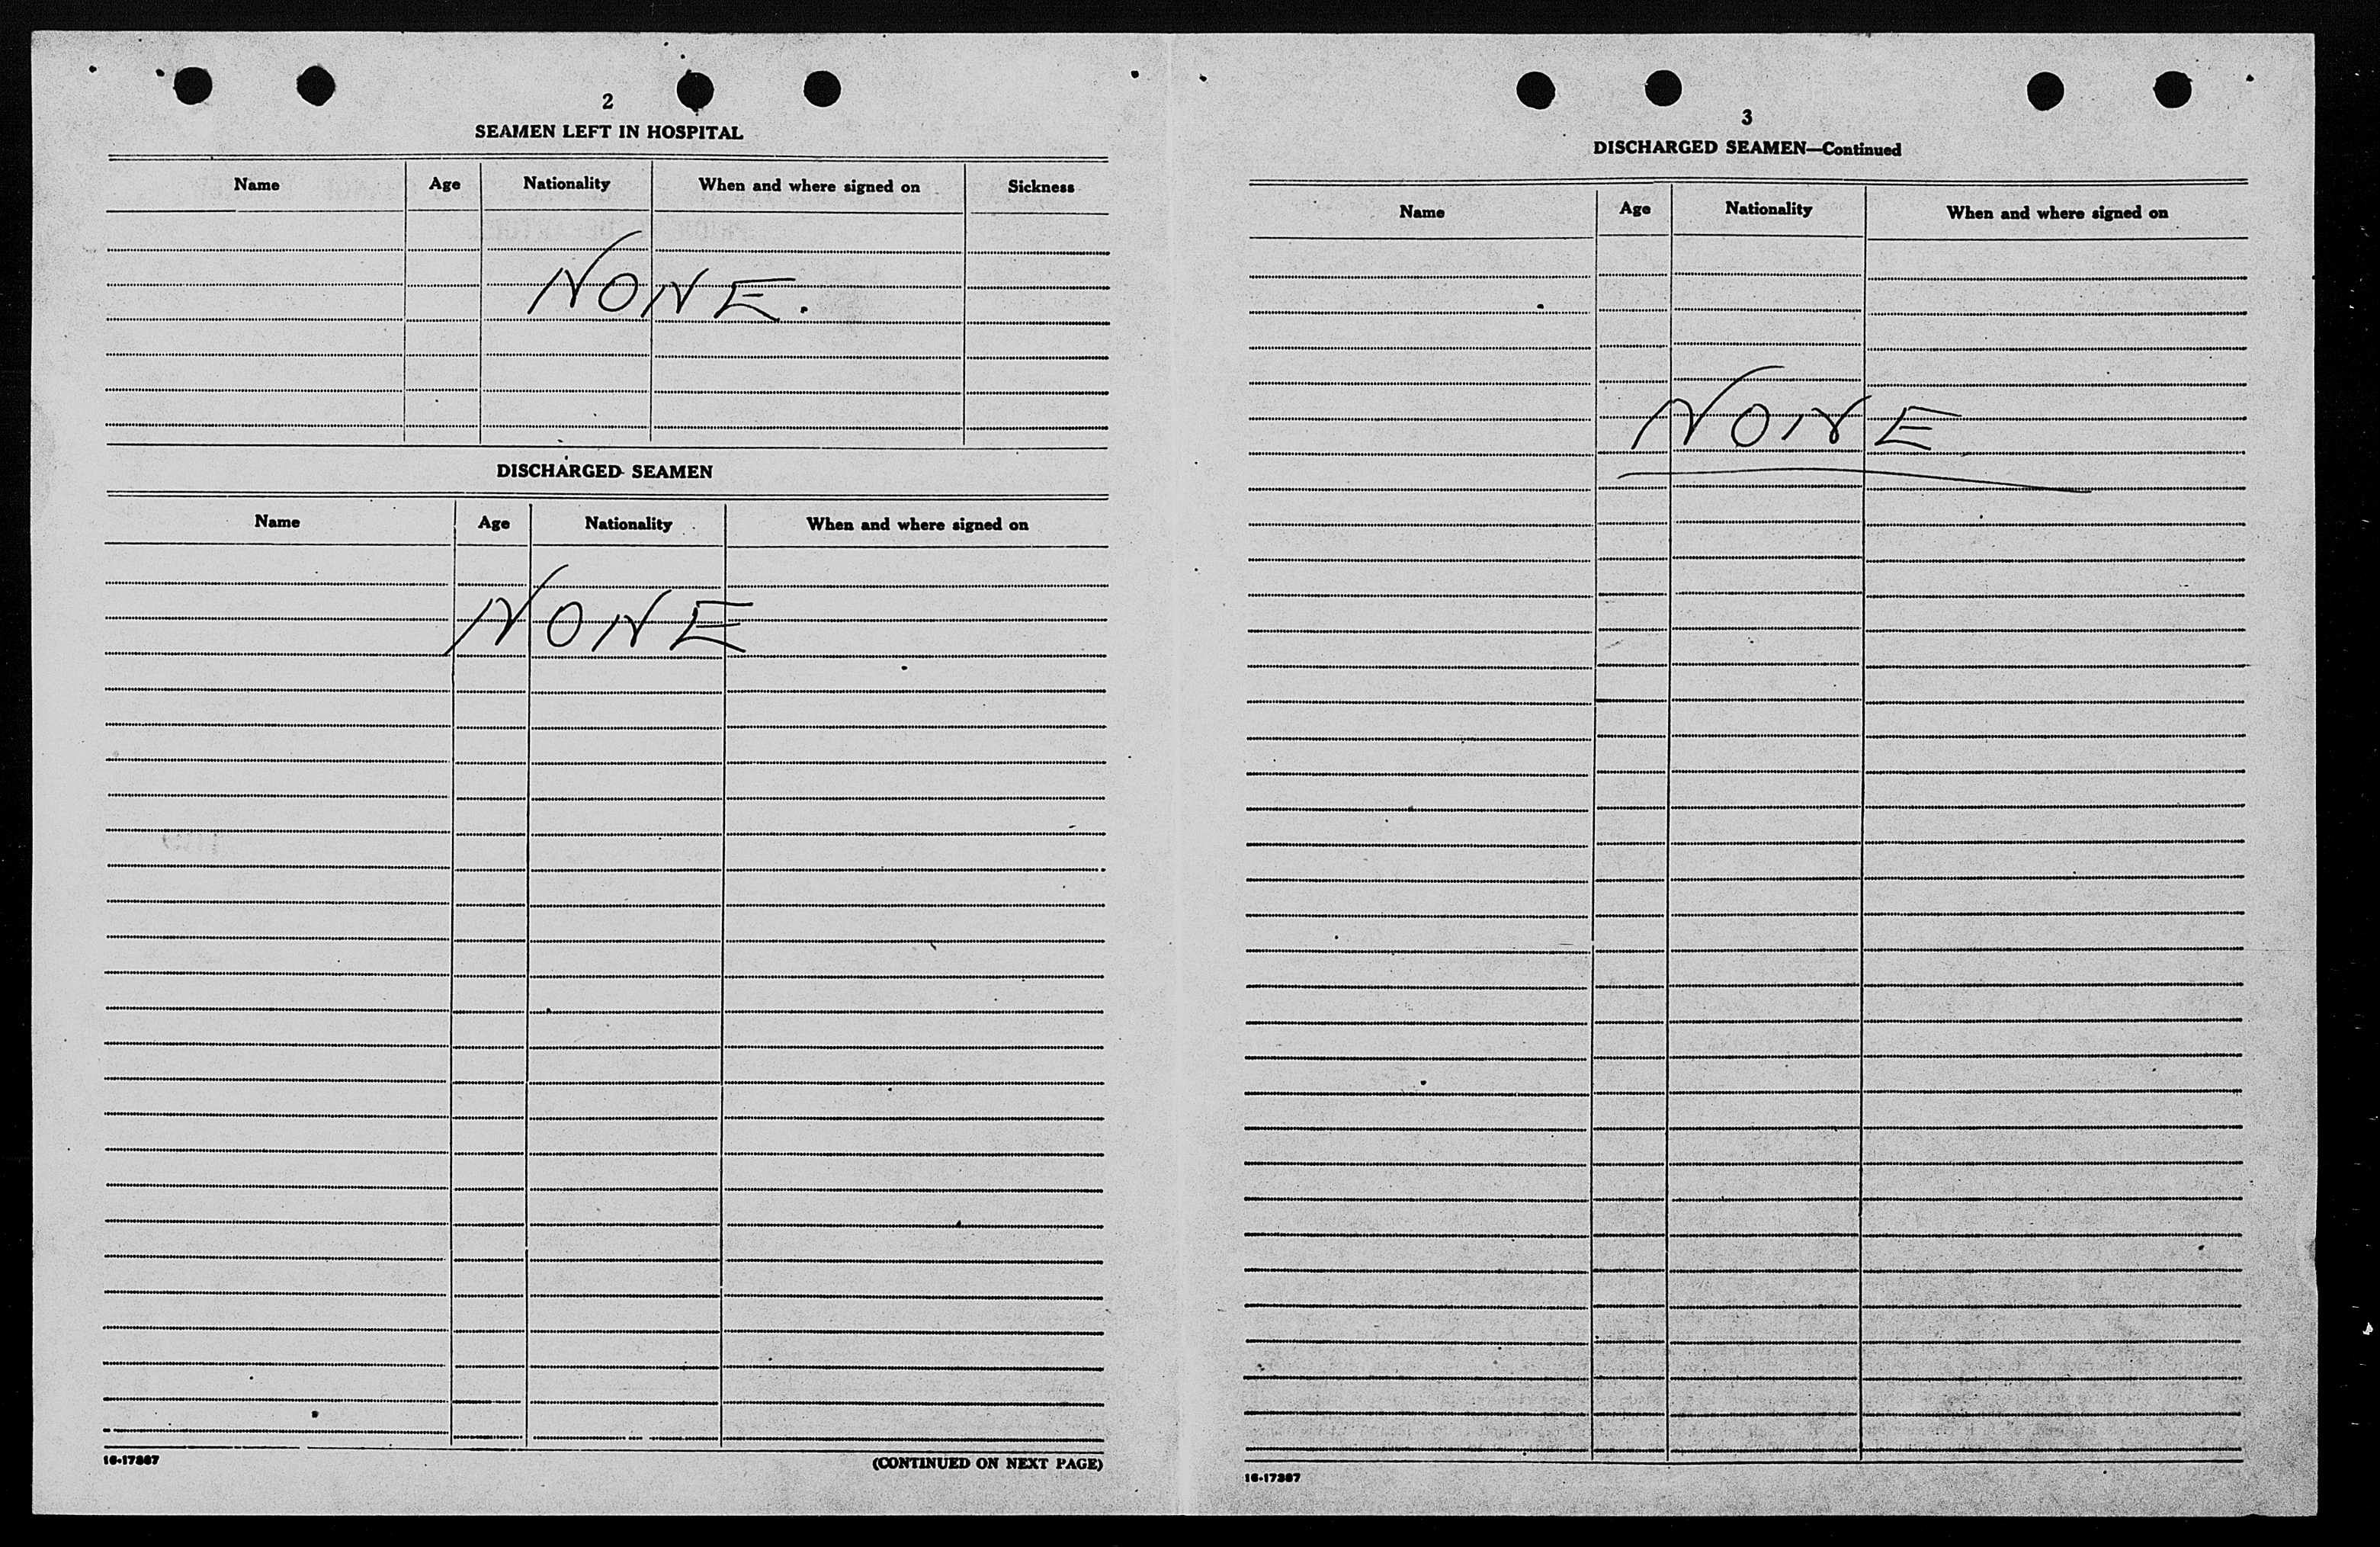 2
SEAMEN LEFT IN HOSPITAL
Name Age Nationality When and where signed on Sickness
NONE.
DISCHARGED SEAMEN
Name Age Nationality When and where signed on
NONE
16-17367
(CONTINUED ON NEXT PAGE)
3
DISCHARGED SEAMEN—Continued
Name Age Nationality When and where signed on
NONE
16-17367